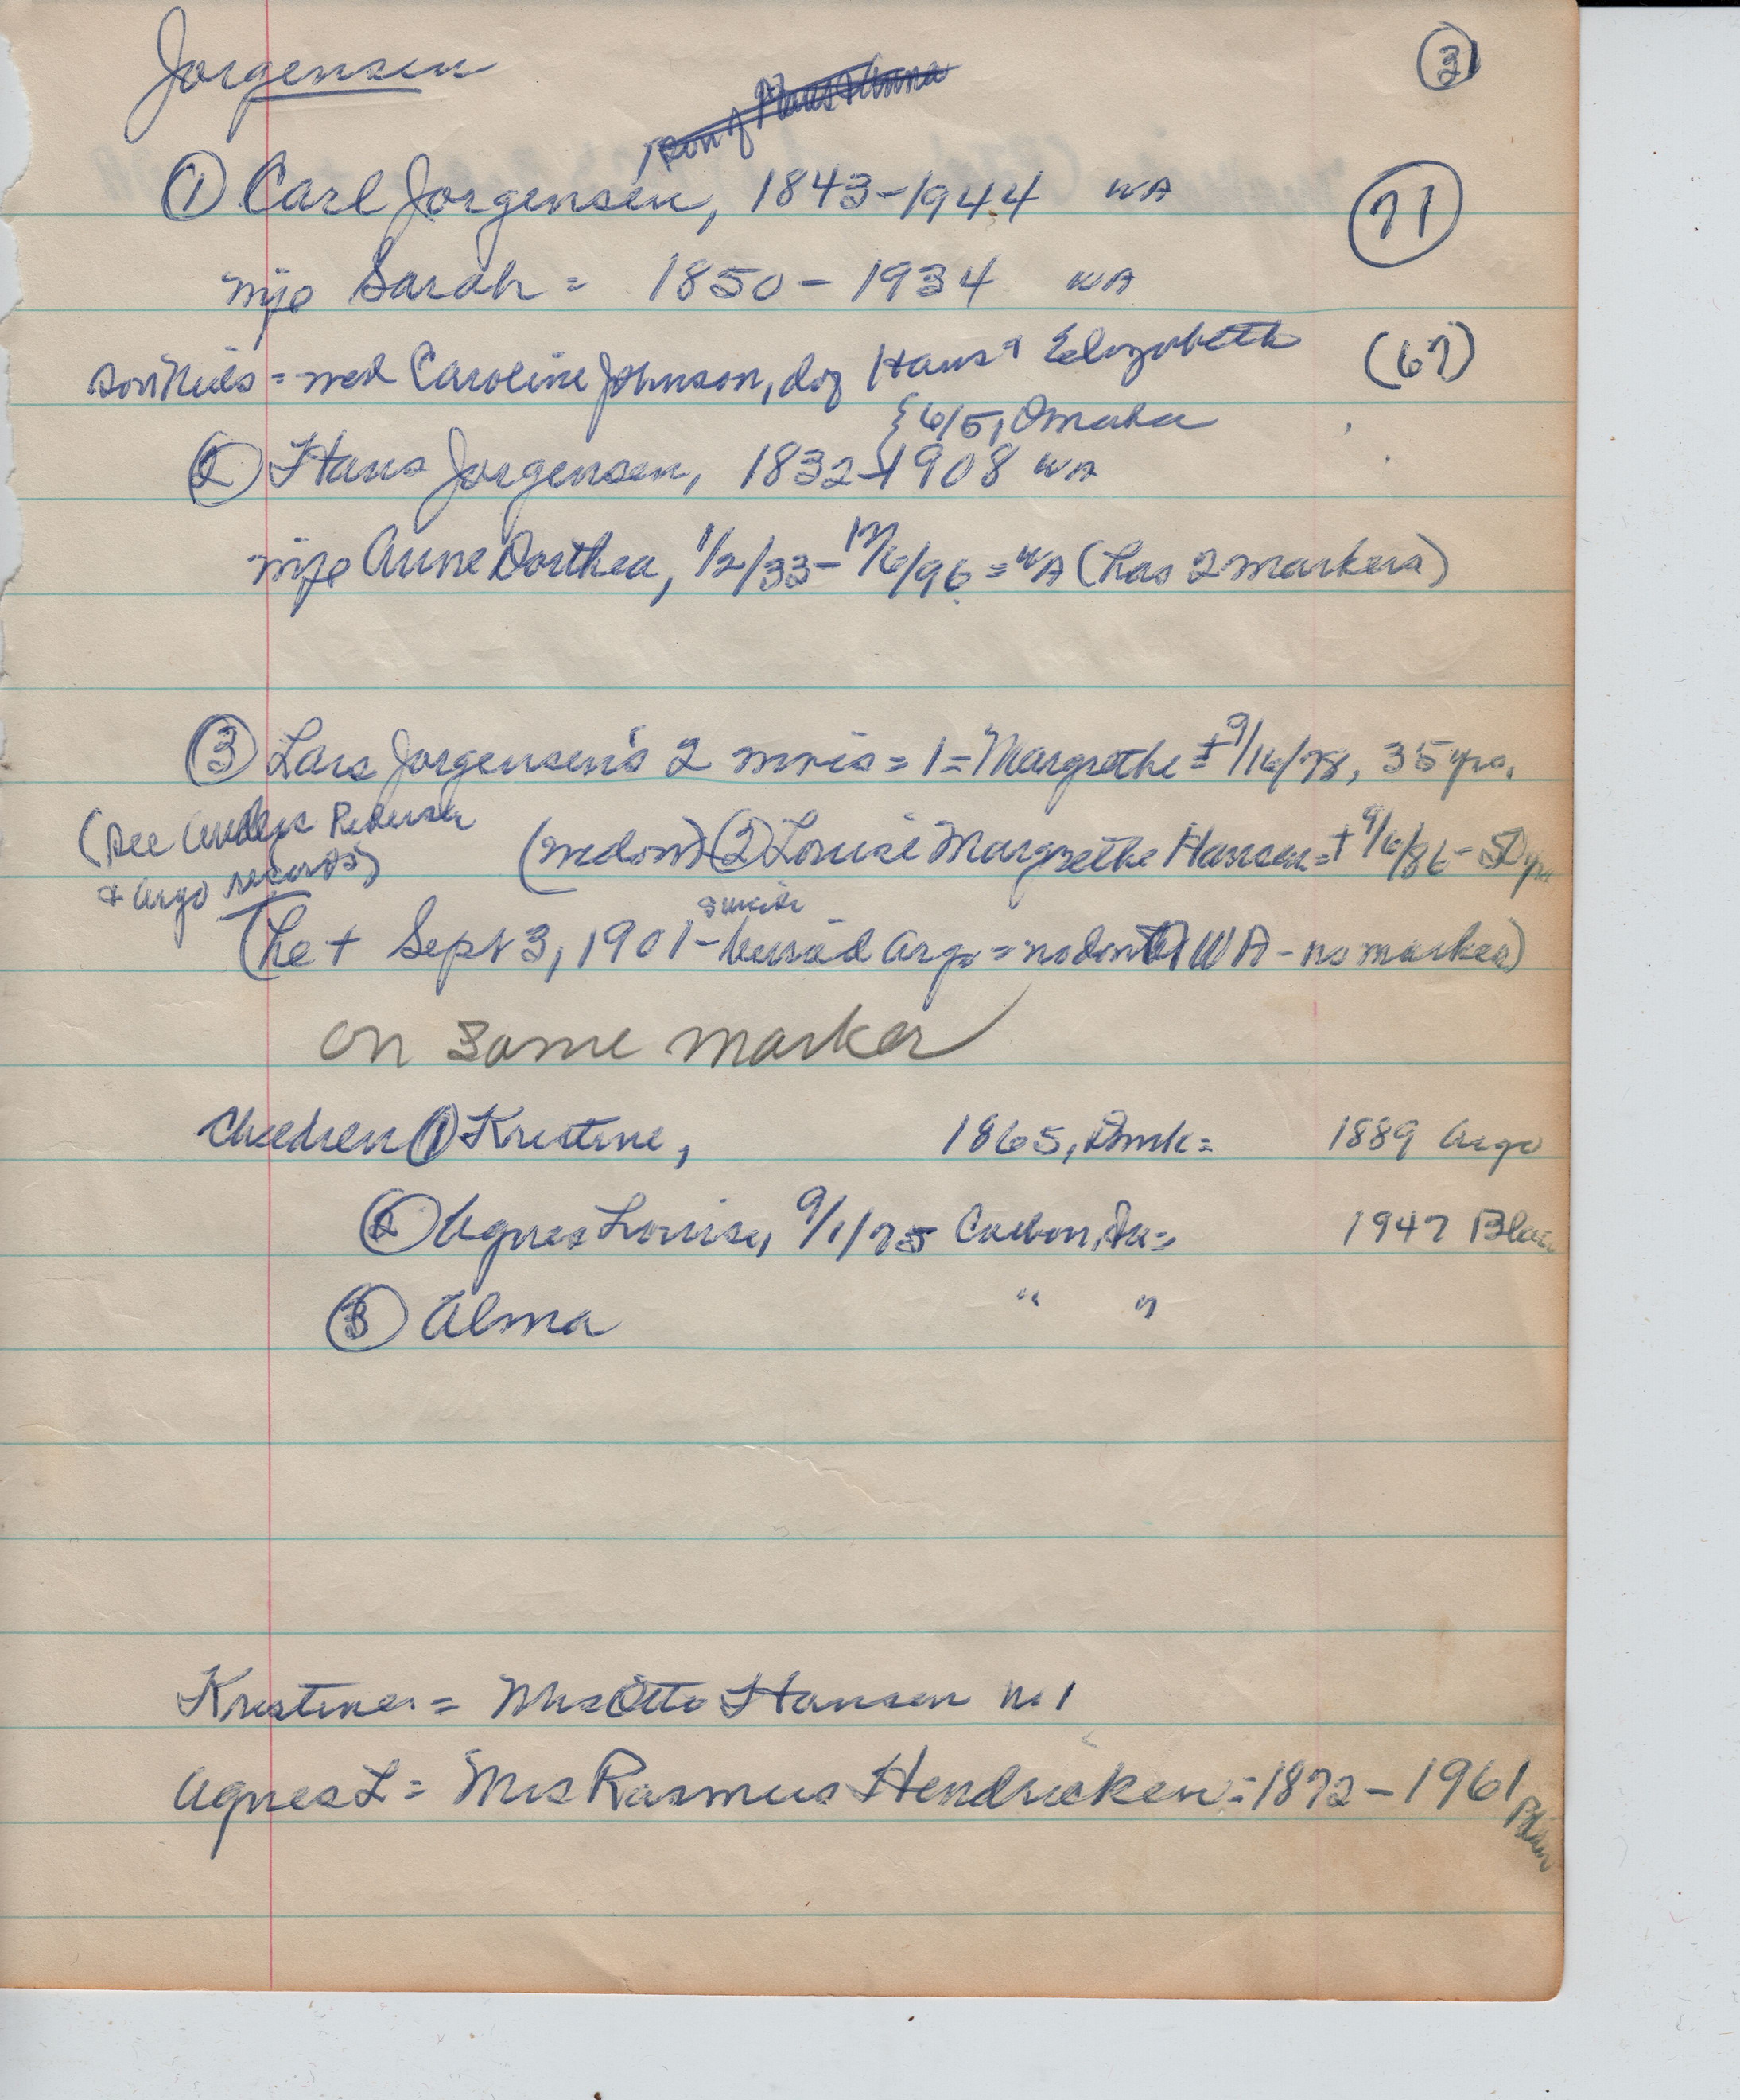 Jorgensen
③
son of Hans & Anna
① Carl Jorgensen, 1843-1944 WA
71
wife Sarah = 1850 - 1934 WA
son Niels = wed Caroline Johnson, d of Hans & Elizabeth (67)
{ 6/5, Omaha
② Hans Jorgensen, 1832-1908 WA
wife Anne Dorthea, 1/2/33- /6/96 = WA (has 2 markers)
③ Lars Jorgensen's 2 wives = 1 = Margrethe = + 9/16/78, 35 yrs.
(see Anders Pedersen
& Argo records)
(widow) ② Louise Margrethe Hansen = + 9/6/86 -
(he + Sept 3, 1901 - suicide buried Argo = no doubt WA - no marker)
on same marker
Children ① Kristine, 1865, Dmk = 1889 Argo
② Agnes Louise, 9/1/75 Colbon, = 1947 Blair
③ Alma " "
Kristine = Mrs Otto Hansen no 1
Agnes L = Mrs Rasmus Hendricksen = 1872 - 1961 Blair